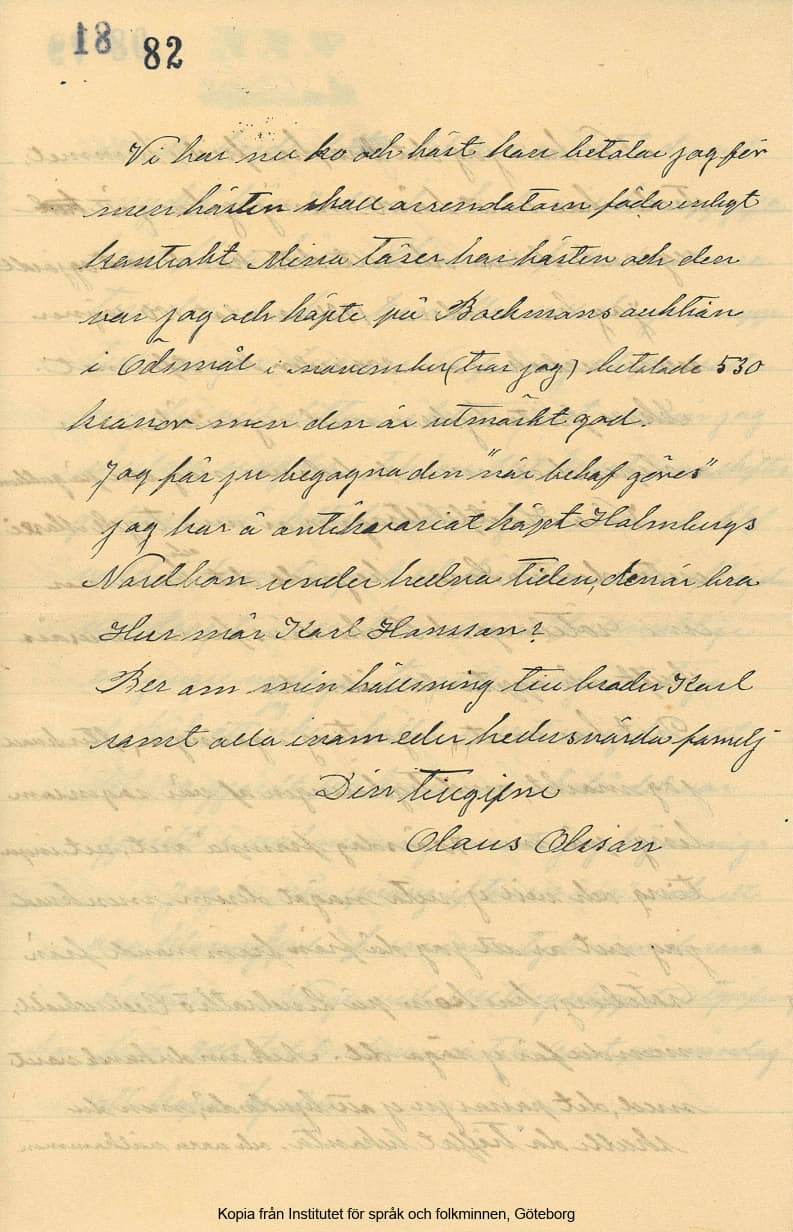 18 82
Vi har nu ko och häst kon betalar jag för
men hästen skall arrendatorn föda enligt
kontrakt Mina täser har hästen och den
var jag och köpte på Backmans auktion
i Ödsmål i november (tror jag) betalade 530
kronor men den är utmärkt god.
Jag får ju begagna den "när behof göres"
jag har å antikvariat köpt Holmbergs
Nordbon under hedna tiden, den är bra
Hur mår Karl Hansson?
Ber om min hällsning till broder Karl
samt alla inom eder hedersvärda familj
Din tillgifne
Olaus Olsson
Kopia från Institutet för språk och folkminnen, Göteborg